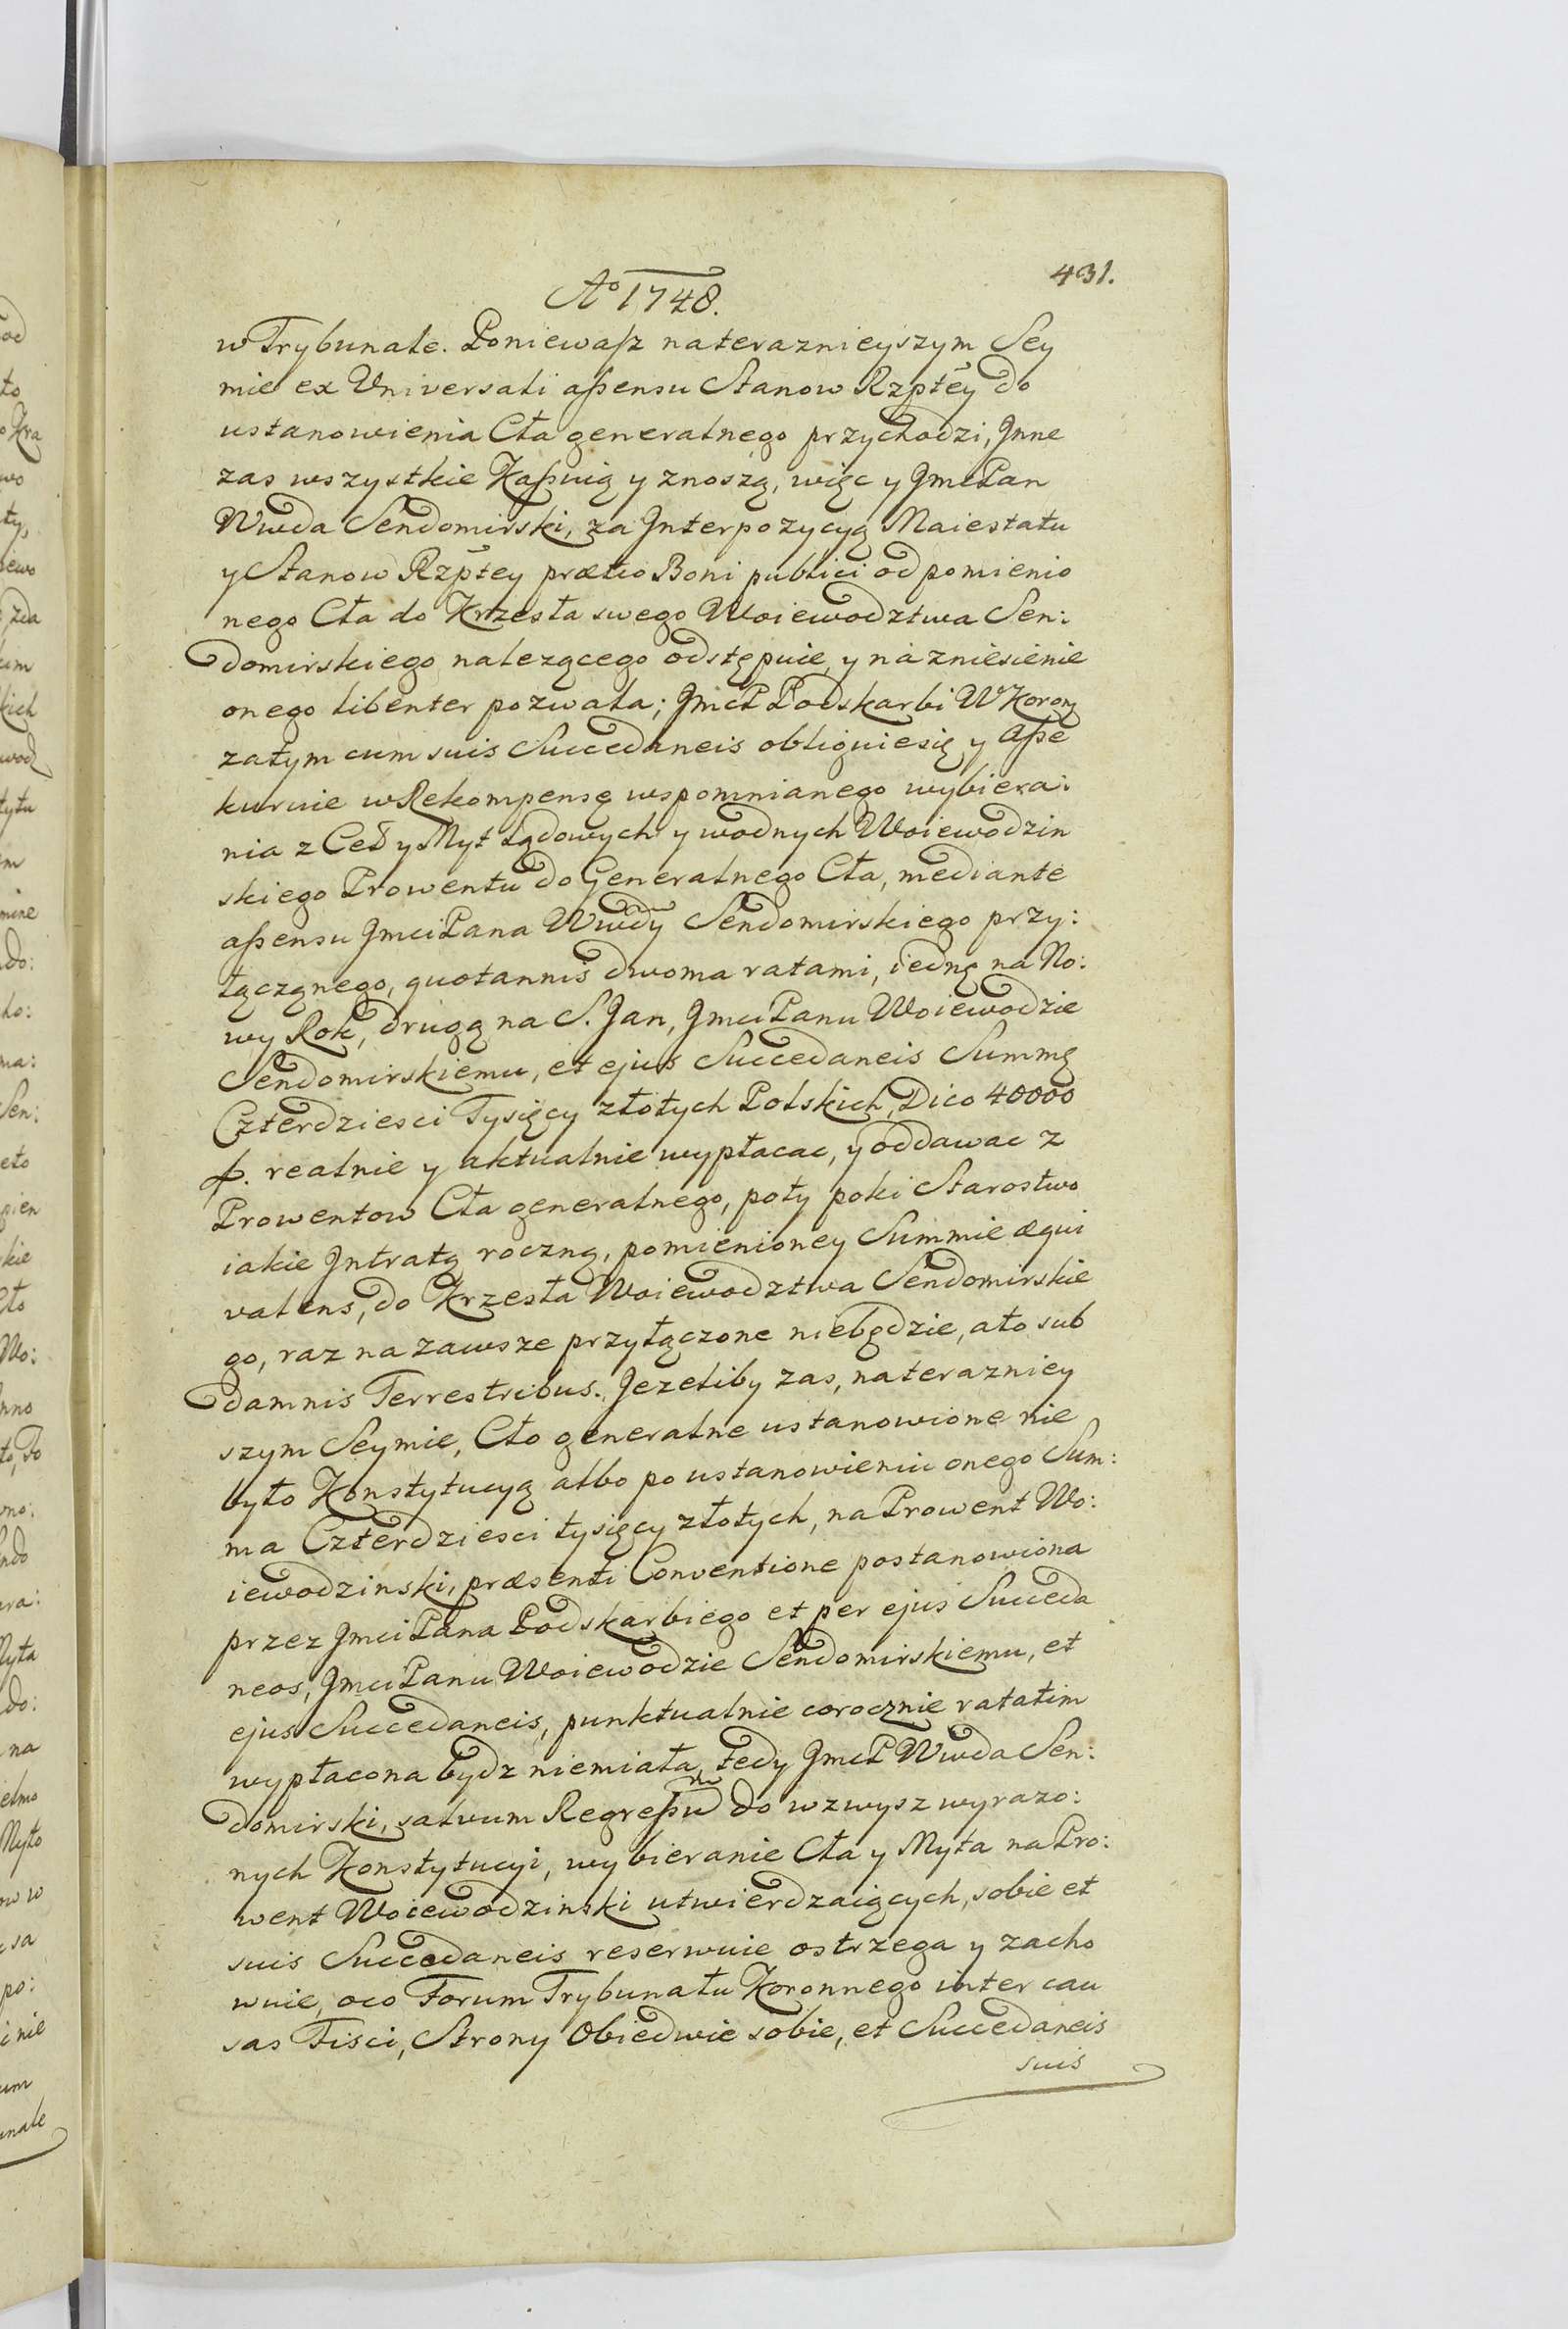 431.
Aº 1748.
w Trybunale. Poniewaſz naterazniejszym Sey
mie ex Universali aſsensu Stanow Rzptēy do
ustanowienia Cła generalnego przychodzi, Jnne
zas wszystkie Kaſsuią y znoszą, więc y JmcPan
Wwda Sendomirski, za Jnterpozycyą Maiestatu
y Stanow Rzptēy prætio Boni publici od pomienio
nego Cła do Krzesła swego Woiewodztwa Sen:
domirskiego nalezącego odstępuie, y na zniesienie
onego libenter pozwala; JmcP Podskarbi WKoroṇ
zatym cum suis Succedaneis obliguiesię y aſse
kuruie w Rekompensę wspomnianego wybiera:
nia z Ceł y Myt Lądowych y wodnych Woiewodzin
skiego Prowentu do Generalnego Cła, mediante
aſsensu JmciPana Wwdy Sendomirskiego przy:
łączągnego, quotannis dwoma ratami, iednę na No:
wy Rok, drugą na S. Jan, JmciPanu Woiewodzie
Sendomirskiemu, et ejus Succedaneis Summę
Czterdziesci Tysięcy złotych Polskich, Dico 40000
f. realnie y aktualnie wypłacac, y oddawac z
Prowentow Cła generalnego, poty poki Starostwo
iakie Jntratą roczną, pomienioney Summie æqui
valens, do Krzesła Woiewodztwa Sendomirskie
go, raz na zawsze przyłączone niebędzie, ato sub
damnis Terrestribus. Jezeliby zas, naterazniey
szym Seymie, Cło generalne ustanowione nie
było Konstytucyą albo po ustanowieniu onego Sum:
ma Czterdziesci tysięcy złotych, na Prowent Wo:
iewodzinski, præsenti Conventione postanowiona
przez JmciPana Podskarbiego et per ejus Succeda
neos, JmciPanu Woiewodzie Sendomirskiemu, et
ejus Succedaneis, punktualnie corocznie ratatim
wypłacona bydz niemiała, tedy JmcP Wwda Sen:
domirski, salvum Regreſsum do wzwysz wyrazo:
nych Konstytucyi, wybieranie Cła y Myta na Pro:
went Woiewodzinski utwierdzaiących, sobie et
suis Succedaneis reserwuie ostrzega y zacho
wuie, oco Forum Trybunału Koronnego inter cau
sas Fisci, Strony Obiedwie sobie, et Succedaneis
suis